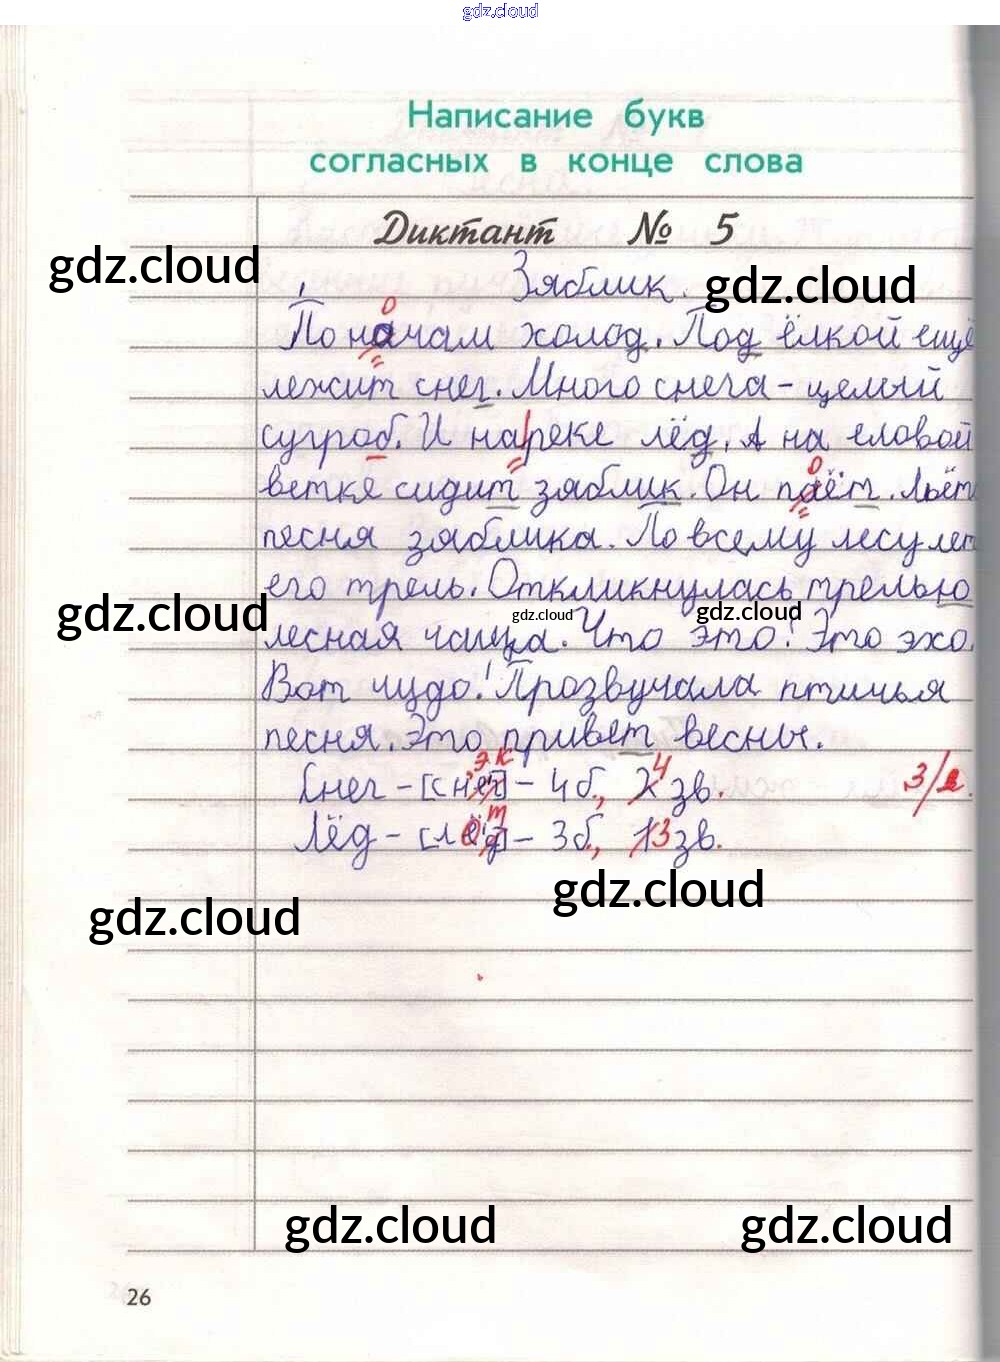 gdz.cloud
Написание букв
согласных в конце слова
Диктант № 5
gdz.cloud
Зяблик.
gdz.cloud
о
По начам холод. Под ёлкой ещё
лежит снег. Много снега - целый
сугроб. И на|реке лёд. А на еловой
о
ветке сидит зяблик. Он паёт. Льёт
песня зяблика. По всему лесу лет
его трель. Откликнулась трелью
gdz.cloud
gdz.cloud
gdz.cloud
лесная чаща. Что это? Это эхо.
Вот чудо! Прозвучала птичья
песня. Это привет весны.
э к 4
Снег - [снег] - 4б., зв. 3/
о т
Лёд - [лёд] - 3б., 3 зв.
gdz.cloud
gdz.cloud
gdz.cloud
gdz.cloud
26